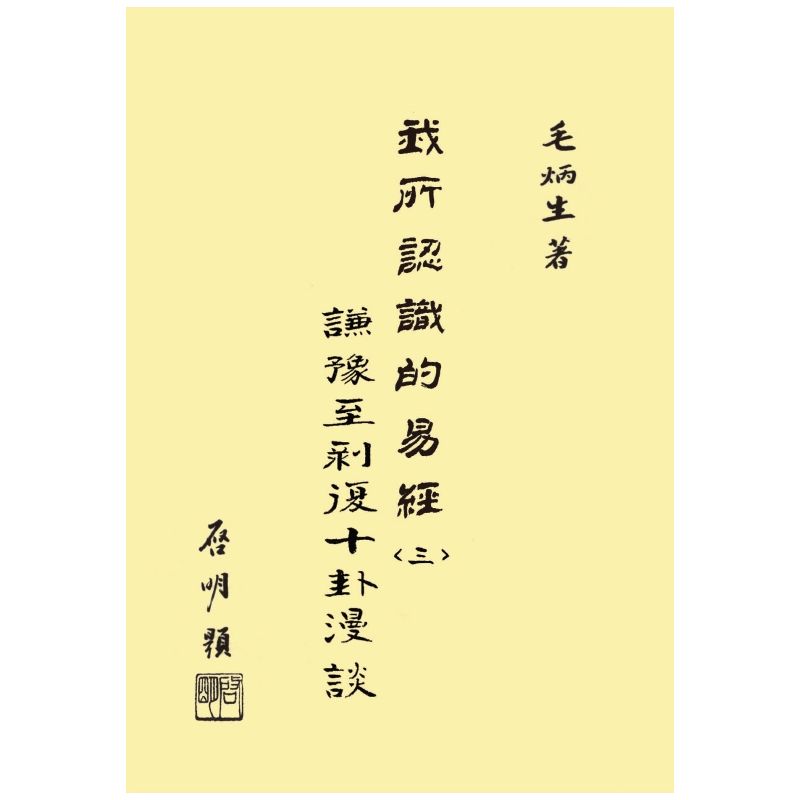 毛炳生著
我所認識的易經
〈三〉
謙豫至剝復十卦漫談
啓明題
啓明